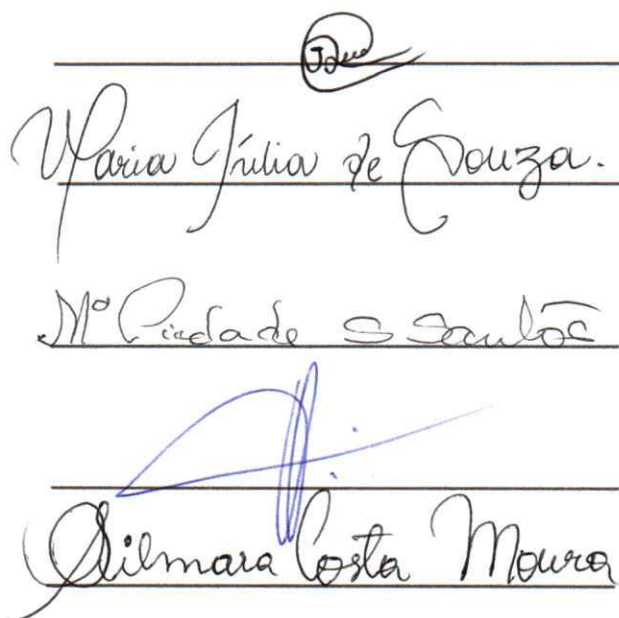 Maria Júlia de Souza.
Mª Piedade S Santos
Costa Moura